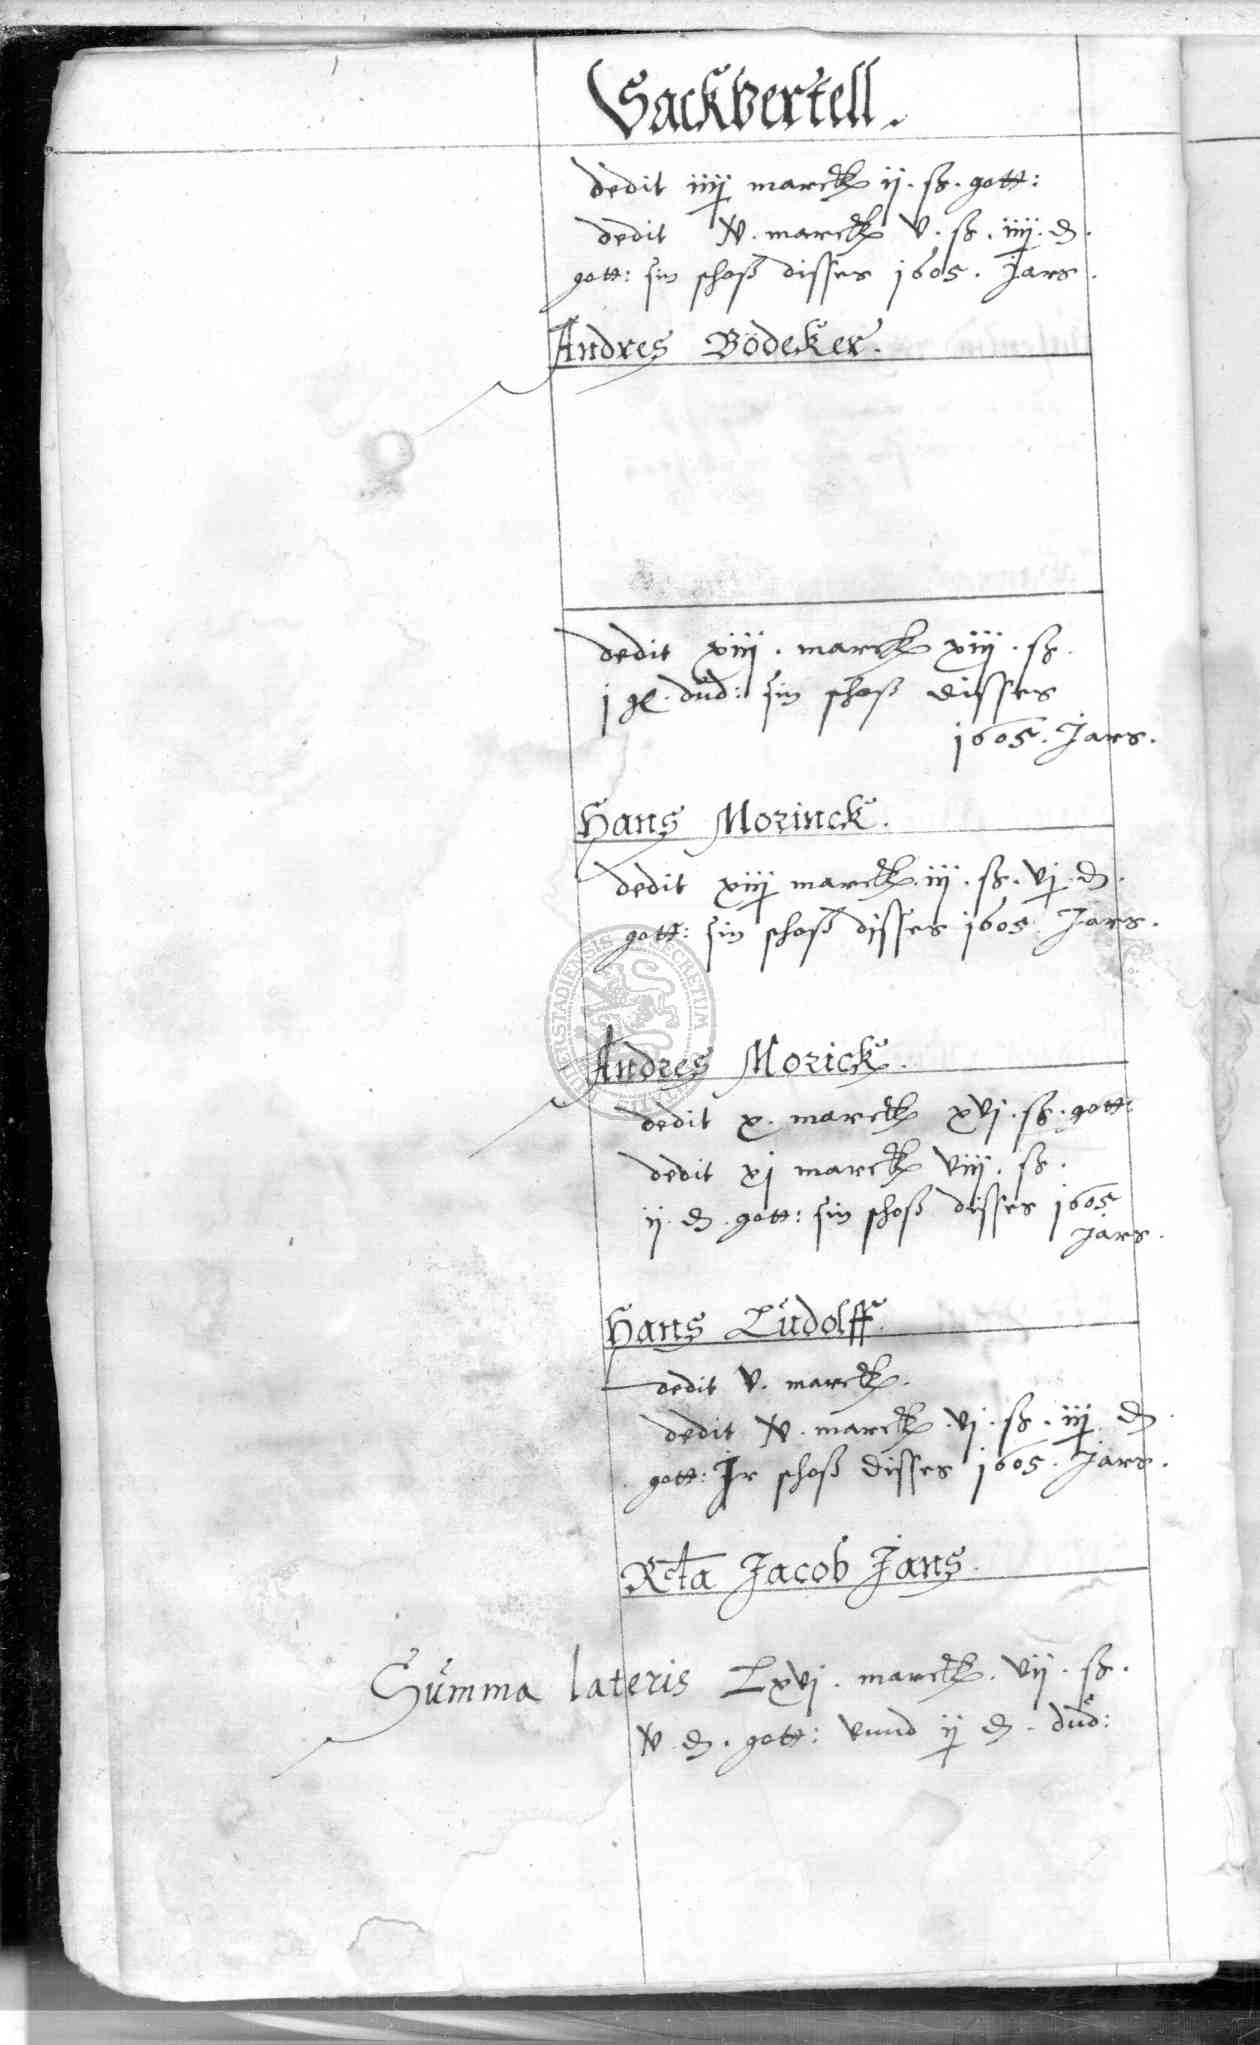 Sackvertell.
dedit iiij marck ij. ß. gott:
dedit xv. marck v. ß. iiij. d.
gott: sin schoß disses 1605. Jars.
Andres Bödeker.
dedit xiiij. marck xiij. ß.
j gl. dud: sin schoß disses
1605. Jars.
Hans Morinck.
dedit xiiij marck. iij. ß. vj. d.
gott: sin schoß disses 1605. Jars.
Andres Morick.
dedit x. marck xvj. ß. gott:
dedit xj marck viij. ß.
ij. d. gott: sin schoß disses 1605
Jars.
Hans Ludolff.
dedit v. marck.
dedit xv. marck. vj. ß. iij d
gott: Jr schoß disses 1605. Jars.
Rcta Jacob Jans.
Summa lateris Lxvj. marck. vij. ß.
xv d. gott: vnnd ij d. dud: